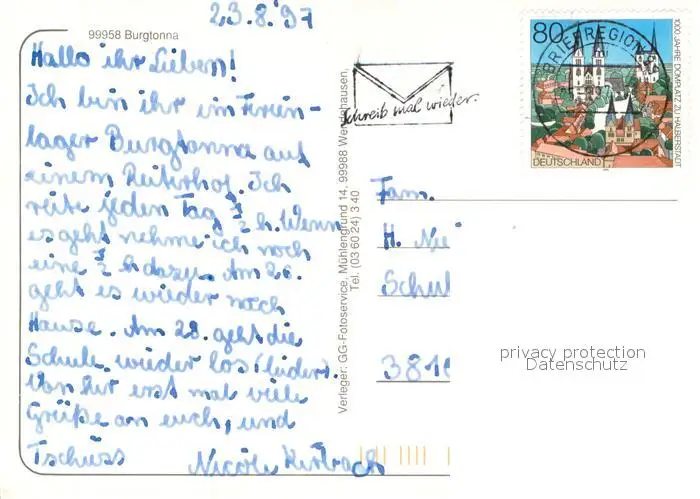 23.8.97
99958 Burgtonna
Hallo ihr Lieben!
Ich bin ihr im Ferien-
lager Burgtonna auf
einem Reiterhof. Ich
reite jeden Tag ½ h. Wenn
es geht nehme ich noch
eine ½ h dazu. Am 26.
geht es wieder nach
Hause. Am 28. geht die
Schule wieder los (leider).
Von hir erst mal viele
Grüße an euch, und
Tschüss Nicole
Verleger: GG-Fotoservice, Mühlengrund 14, 99988
Tel. (03 60 24) 3 40
Schreib mal wieder.
BRIEFREGION
80
1000 JAHRE DOMPLATZ ZU HALBERSTADT
DEUTSCHLAND
Fam.
H.
Schul
381
privacy protection
Datenschutz